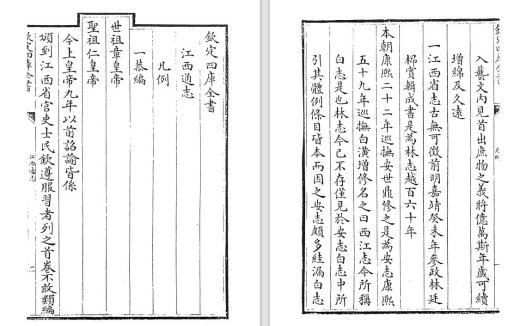 欽定四庫全書
江西通志
凡例
一恭編
世祖章皇帝
聖祖仁皇帝
今上皇帝九年以前詔諭皆係
頒到江西省官吏士民欽遵服習者列之首卷不敢類編
入藝文內見首出庶物之義將億萬斯年歲可續
增綿及久遠
一江西省志古無可徵前明嘉靖癸未年參政林廷
㭿實輯成書是為林志越百六十年
本朝康熙二十二年巡撫安世鼎修之是為安志康熙
五十九年巡撫白潢增修名之曰西江志今所稱
白志是也林志今已不存僅見於安志白志中所
引其體例條目皆本而因之安志頗多絓漏白志